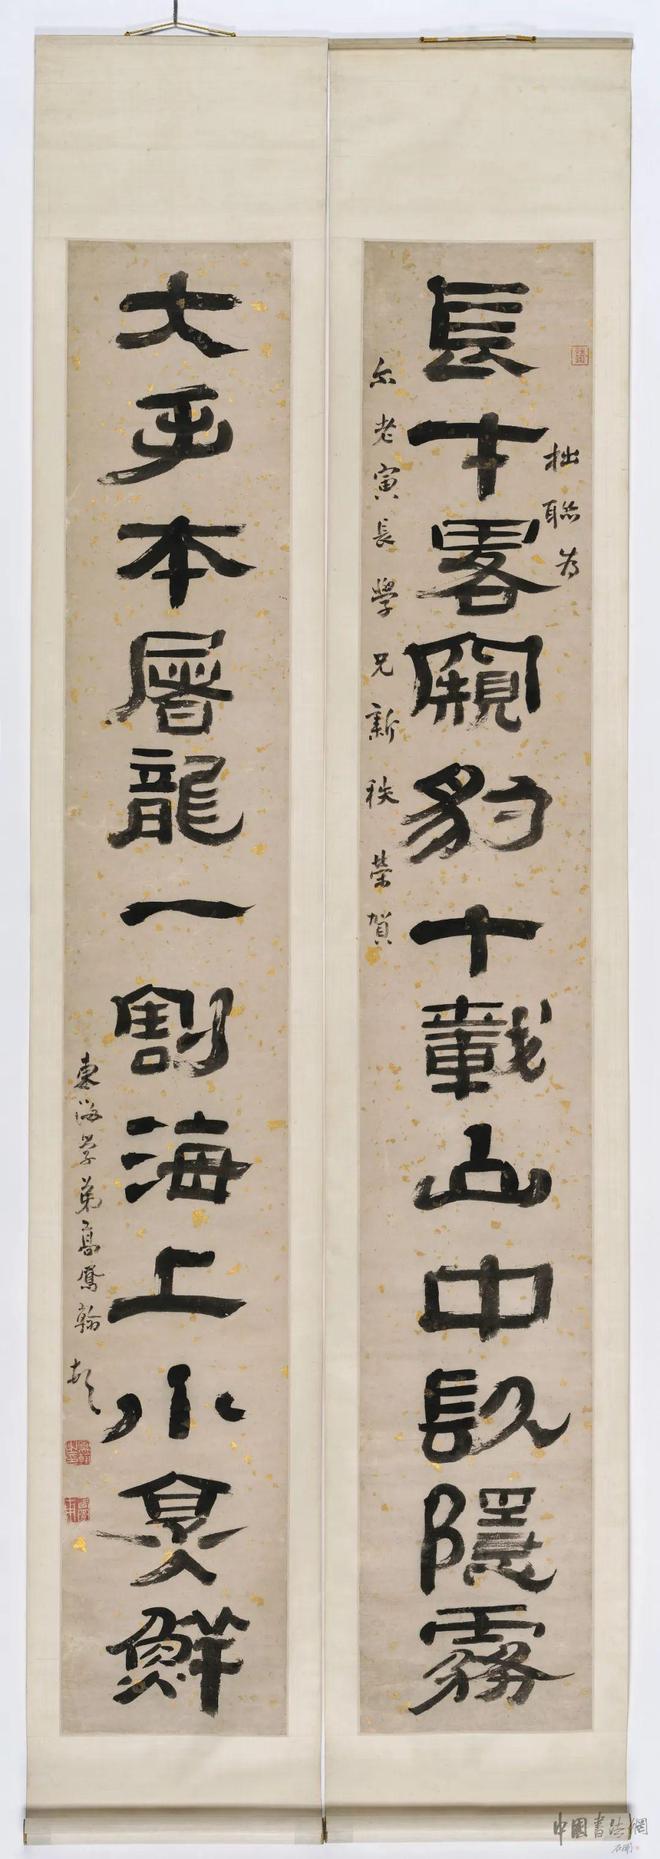 長才略窺豹十載山中臥隱霧
拙聯為
尔老寅長學兄新秩榮賀
大手本屠龍一割海上小烹鮮
東海學弟高鳳翰
中國書法網